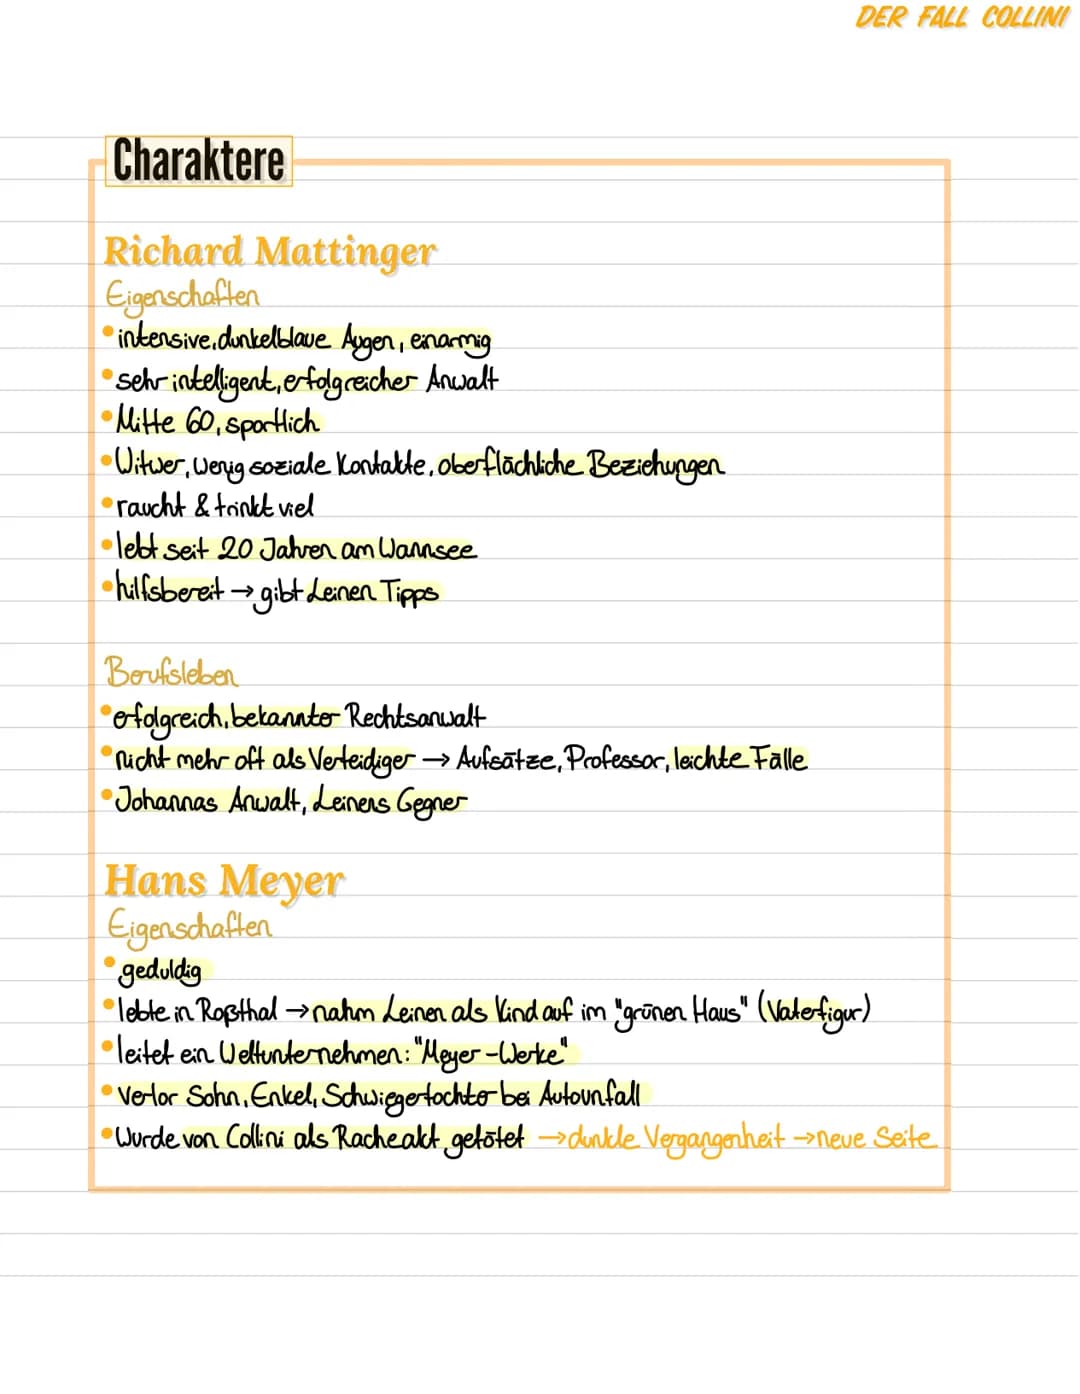 DER FALL COLLINI
Charaktere
Richard Mattinger
Eigenschaften
• intensive, dunkelblaue Augen, einarmig
• sehr intelligent, erfolgreicher Anwalt
• Mitte 60, sportlich
• Witwer, wenig soziale Kontakte, oberflächliche Beziehungen
• raucht & trinkt viel
• lebt seit 20 Jahren am Wannsee
• hilfsbereit → gibt Leinen Tipps
Berufsleben
• erfolgreich, bekannter Rechtsanwalt
• nicht mehr oft als Verteidiger → Aufsätze, Professor, leichte Fälle
• Johannas Anwalt, Leinens Gegner
Hans Meyer
Eigenschaften
• geduldig
• lebte in Roßthal → nahm Leinen als Kind auf im "grünen Haus" (Vaterfigur)
• leitet ein Weltunternehmen: "Meyer-Werke"
• Verlor Sohn, Enkel, Schwiegertochter bei Autounfall
• Wurde von Collini als Racheakt getötet → dunkle Vergangenheit → neue Seite